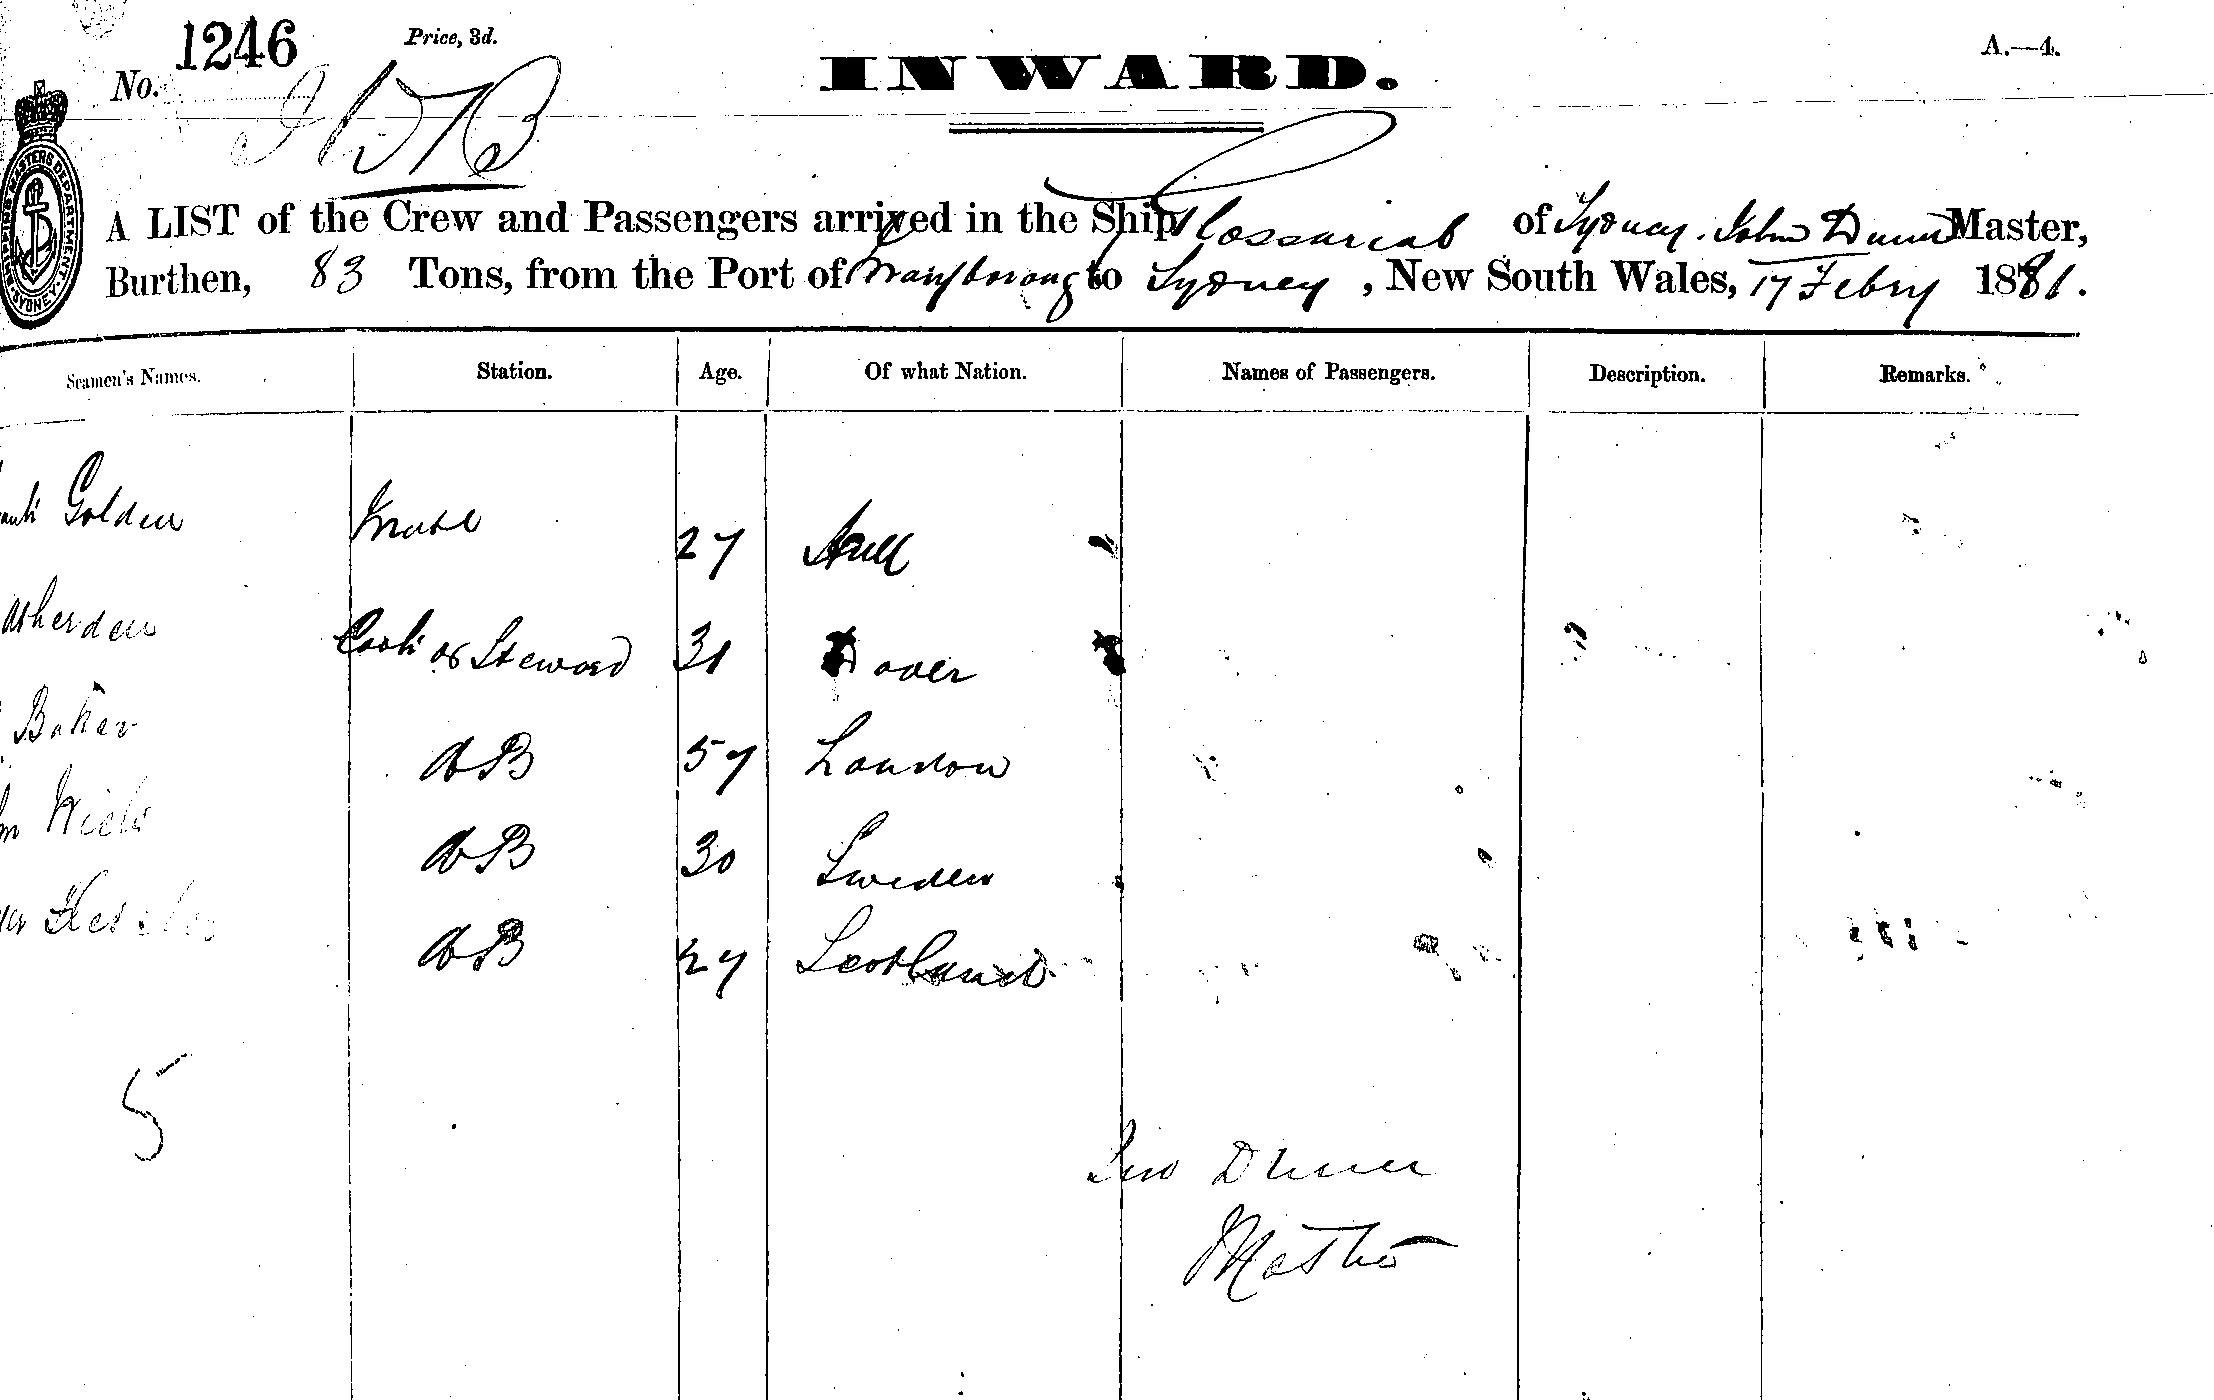 1246 Price, 3d. INWARD. A.—4.
No.
SHIPPING MASTERS DEPARTMENT SYDNEY
A LIST of the Crew and Passengers arrived in the Ship of Sydney. John Dunn Master,
Burthen, 83 Tons, from the Port of to Sydney, New South Wales, 17 Febry 1881.
Seamen's Names. Station. Age. Of what Nation. Names of Passengers. Description. Remarks.
Golden Mate 27 Hull
Cook & Steward 31 Dover
Baker AB 57 London
AB 30 Sweden
AB 27 Scotland
5
Jno Dunn
Master